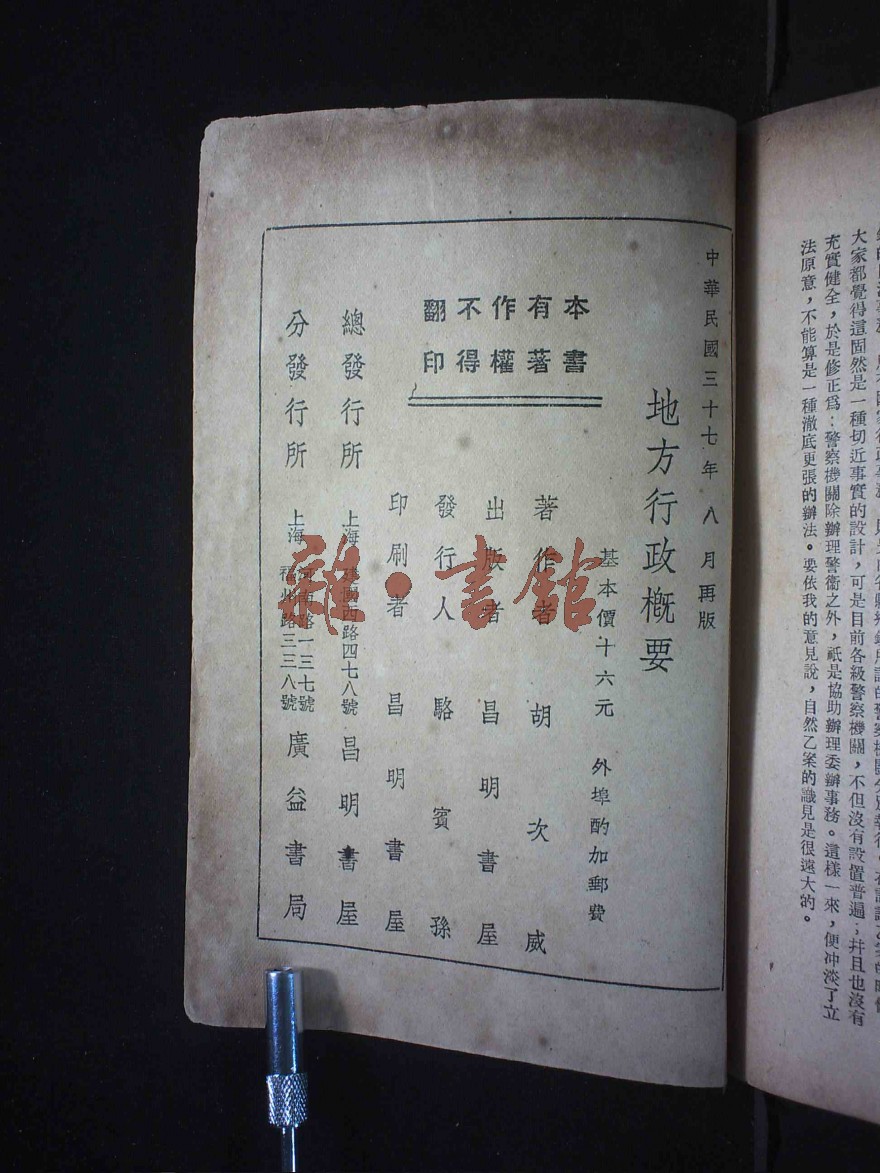 大家都覺得這固然是一種切近事實的設計，可是目前各級警察機關，不但沒有設置普遍；幷且也沒有
充實健全，於是修正爲：警察機關除辦理警衞之外，祇是協助辦理委辦事務。這樣一來，便沖淡了立
法原意，不能算是一種澈底更張的辦法。要依我的意見說，自然乙案的識見是很遠大的。
中華民國三十七年八月再版
地方行政概要
基本價十六元 外埠酌加郵費
本書有著作權不得翻印
著作者 胡次威
出版者 昌明書屋
發行人 駱賓孫
印刷者 昌明書屋
總發行所 上海 建國西路四七八號 昌明書屋
分發行所 上海 河南路一三七號 福州路三三八號 廣益書局
雜·書館